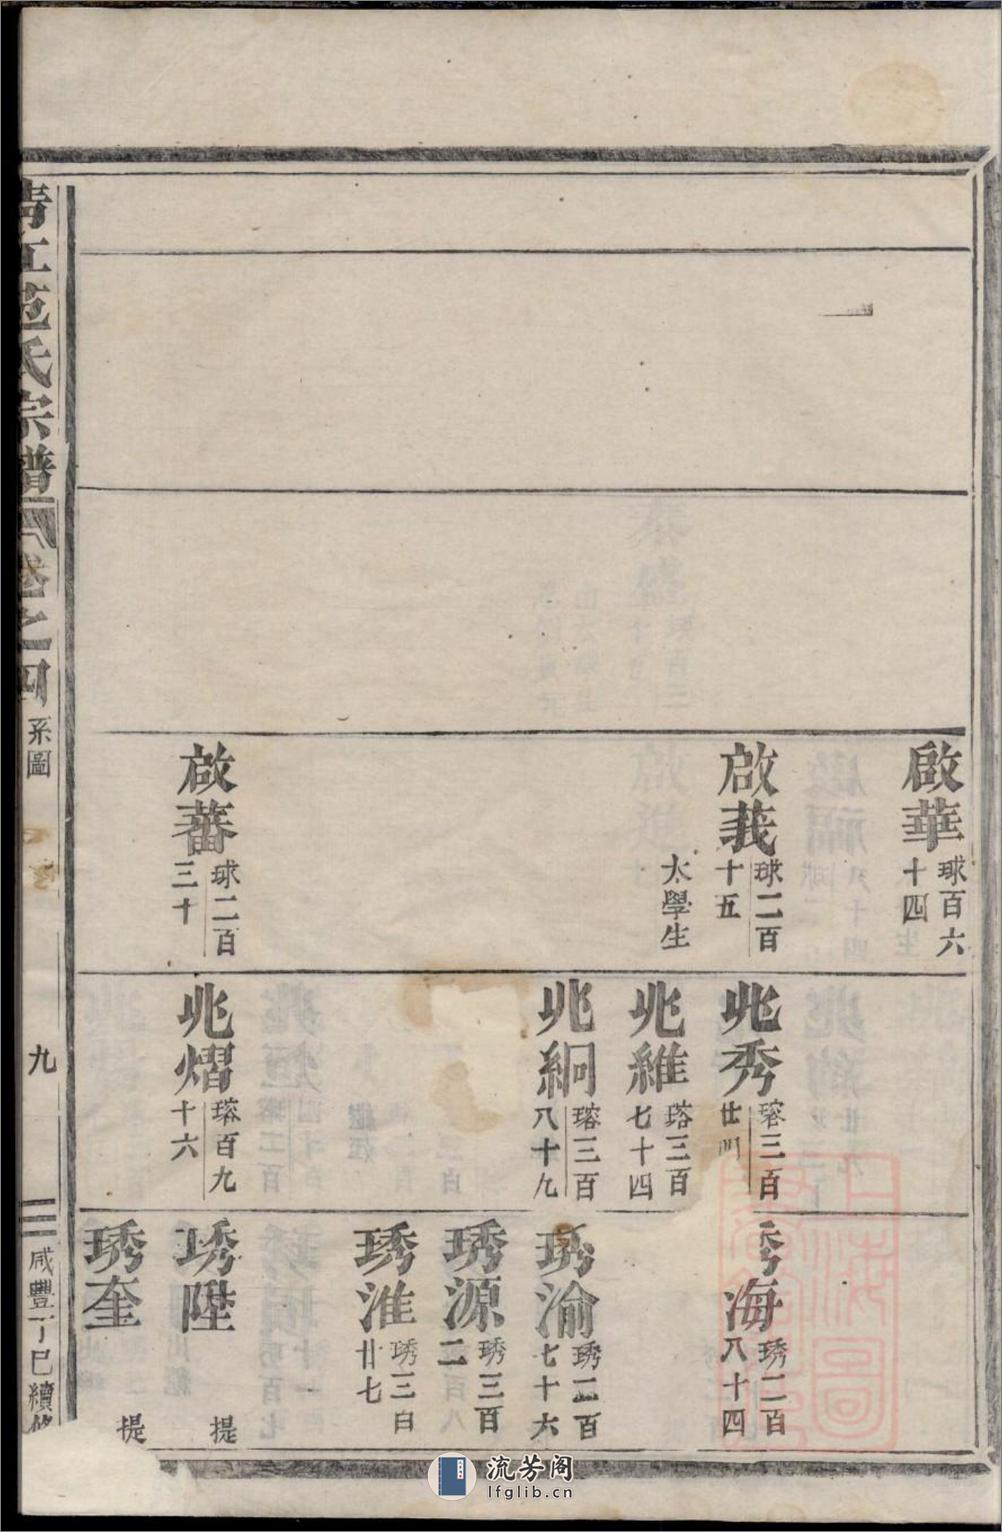 啟華
球百六
十四
啟莪
球二百
十五
太學生
啟蕃
球二百
三十
兆秀
瑢三百
廿
兆維
瑢三百
七十四
兆絅
瑢三百
八十九
兆熠
瑢百九
十六
海
琇二百
八十四
琇渝
琇二百
七十六
琇源
琇三百
二
琇淮
琇三百
廿七
琇陞
提
琇奎
提
清江范氏宗譜
卷之四
系圖
九
咸豐丁巳續修
流芳阁
lfglib.cn